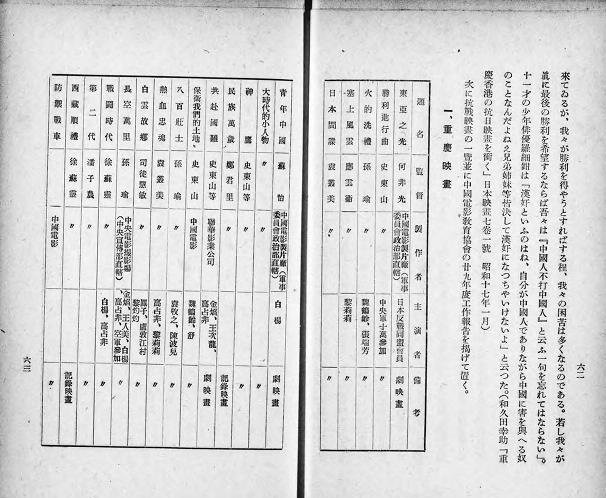 六二
来てゐるが、我々が勝利を得やうとすればする程、我々の困苦は多くなるのである。若し我々が
眞に最後の勝利を希望するならば吾々は『中國人不打中國人』と云ふ一句を忘れてはならない』。
十一才の少年俳優羅細鉗は『漢奸といふのはね、自分が中國人でありながら中國に害を與へる奴
のことなんだよねえ兄弟姉妹等皆決して漢奸になつちやいけないよ』と云つた。(和久田幸助『重
慶香港の抗日映畫を衝く』日本映畫七卷一號 昭和十七年一月)
次に抗戰映畫の一覽並に中國電影敎育協會の廿九年度工作報告を揭げて置く。
一、重慶映畫
題名 監督 製作者 主演者 備考
東亞之光 何非光 中國電影製片廠(軍事委員會政治部直轄) 日本反戰同盟會員 劇映畫
勝利進行曲 史東山 〃 中央軍十萬參加 〃
火的洗禮 孫瑜 〃 魏鶴齡、張瑞芳 〃
塞上風雲 應雲衛 〃 黎莉莉 〃
日本間諜 袁叢美 〃 〃
靑年中國 蘇怡 中國電影製片廠(軍事委員會政治部直轄) 白楊 劇映畫
大時代的小人物 〃 〃 〃
神鷹 史東山等 〃 〃
民族萬歲 鄭君里 〃 記錄映畫
共赴國難 史東山等 聯華影業公司 金焰、王次龍、高占非 劇映畫
保衛我們的土地 史東山 中國電影 魏鶴齡、舒 〃
八百莊士 孫瑜 〃 袁牧之、陳波兒 〃
熱血忠魂 袁叢美 〃 高占非、黎莉莉 〃
白雲故鄉 司徒慧敏 〃 鳳子、盧敦江村黎灼灼 〃
長空萬里 孫瑜 中央電影攝影場(中央宣傳部直轄) 金焰、王人美、白楊、高占非、空軍參加 〃
戰鬪時代 徐蘇靈 〃 白楊、高占非 〃
第二代 潘子農 〃 〃
西藏順禮 徐蘇靈 〃 記錄映畫
防禦戰車 中國電影 〃
六三